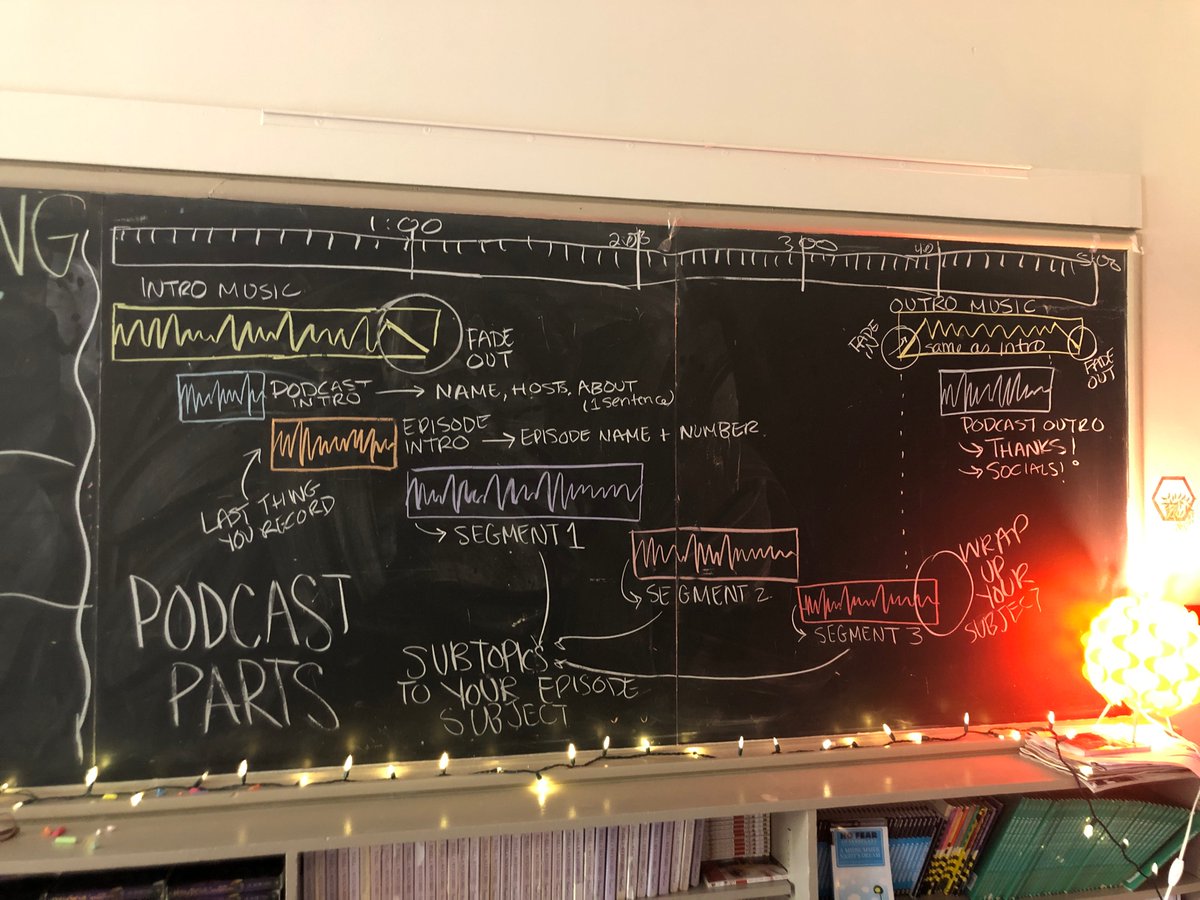 NG
1:00
2:00
3:00
4:00
5:00
INTRO MUSIC
FADE
OUT
OUTRO MUSIC
FADE
IN
same as intro
FADE
OUT
PODCAST
INTRO
NAME, HOSTS, ABOUT
(1 sentence)
EPISODE
INTRO
EPISODE NAME + NUMBER.
LAST THING
YOU RECORD
PODCAST OUTRO
THANKS!
SOCIALS!
SEGMENT 1
SEGMENT 2
SEGMENT 3
WRAP
UP
YOUR
SUBJECT
PODCAST
PARTS
SUBTOPICS
TO YOUR EPISODE
SUBJECT
NO FEAR
A MIDSUMMER
NIGHT'S DREAM